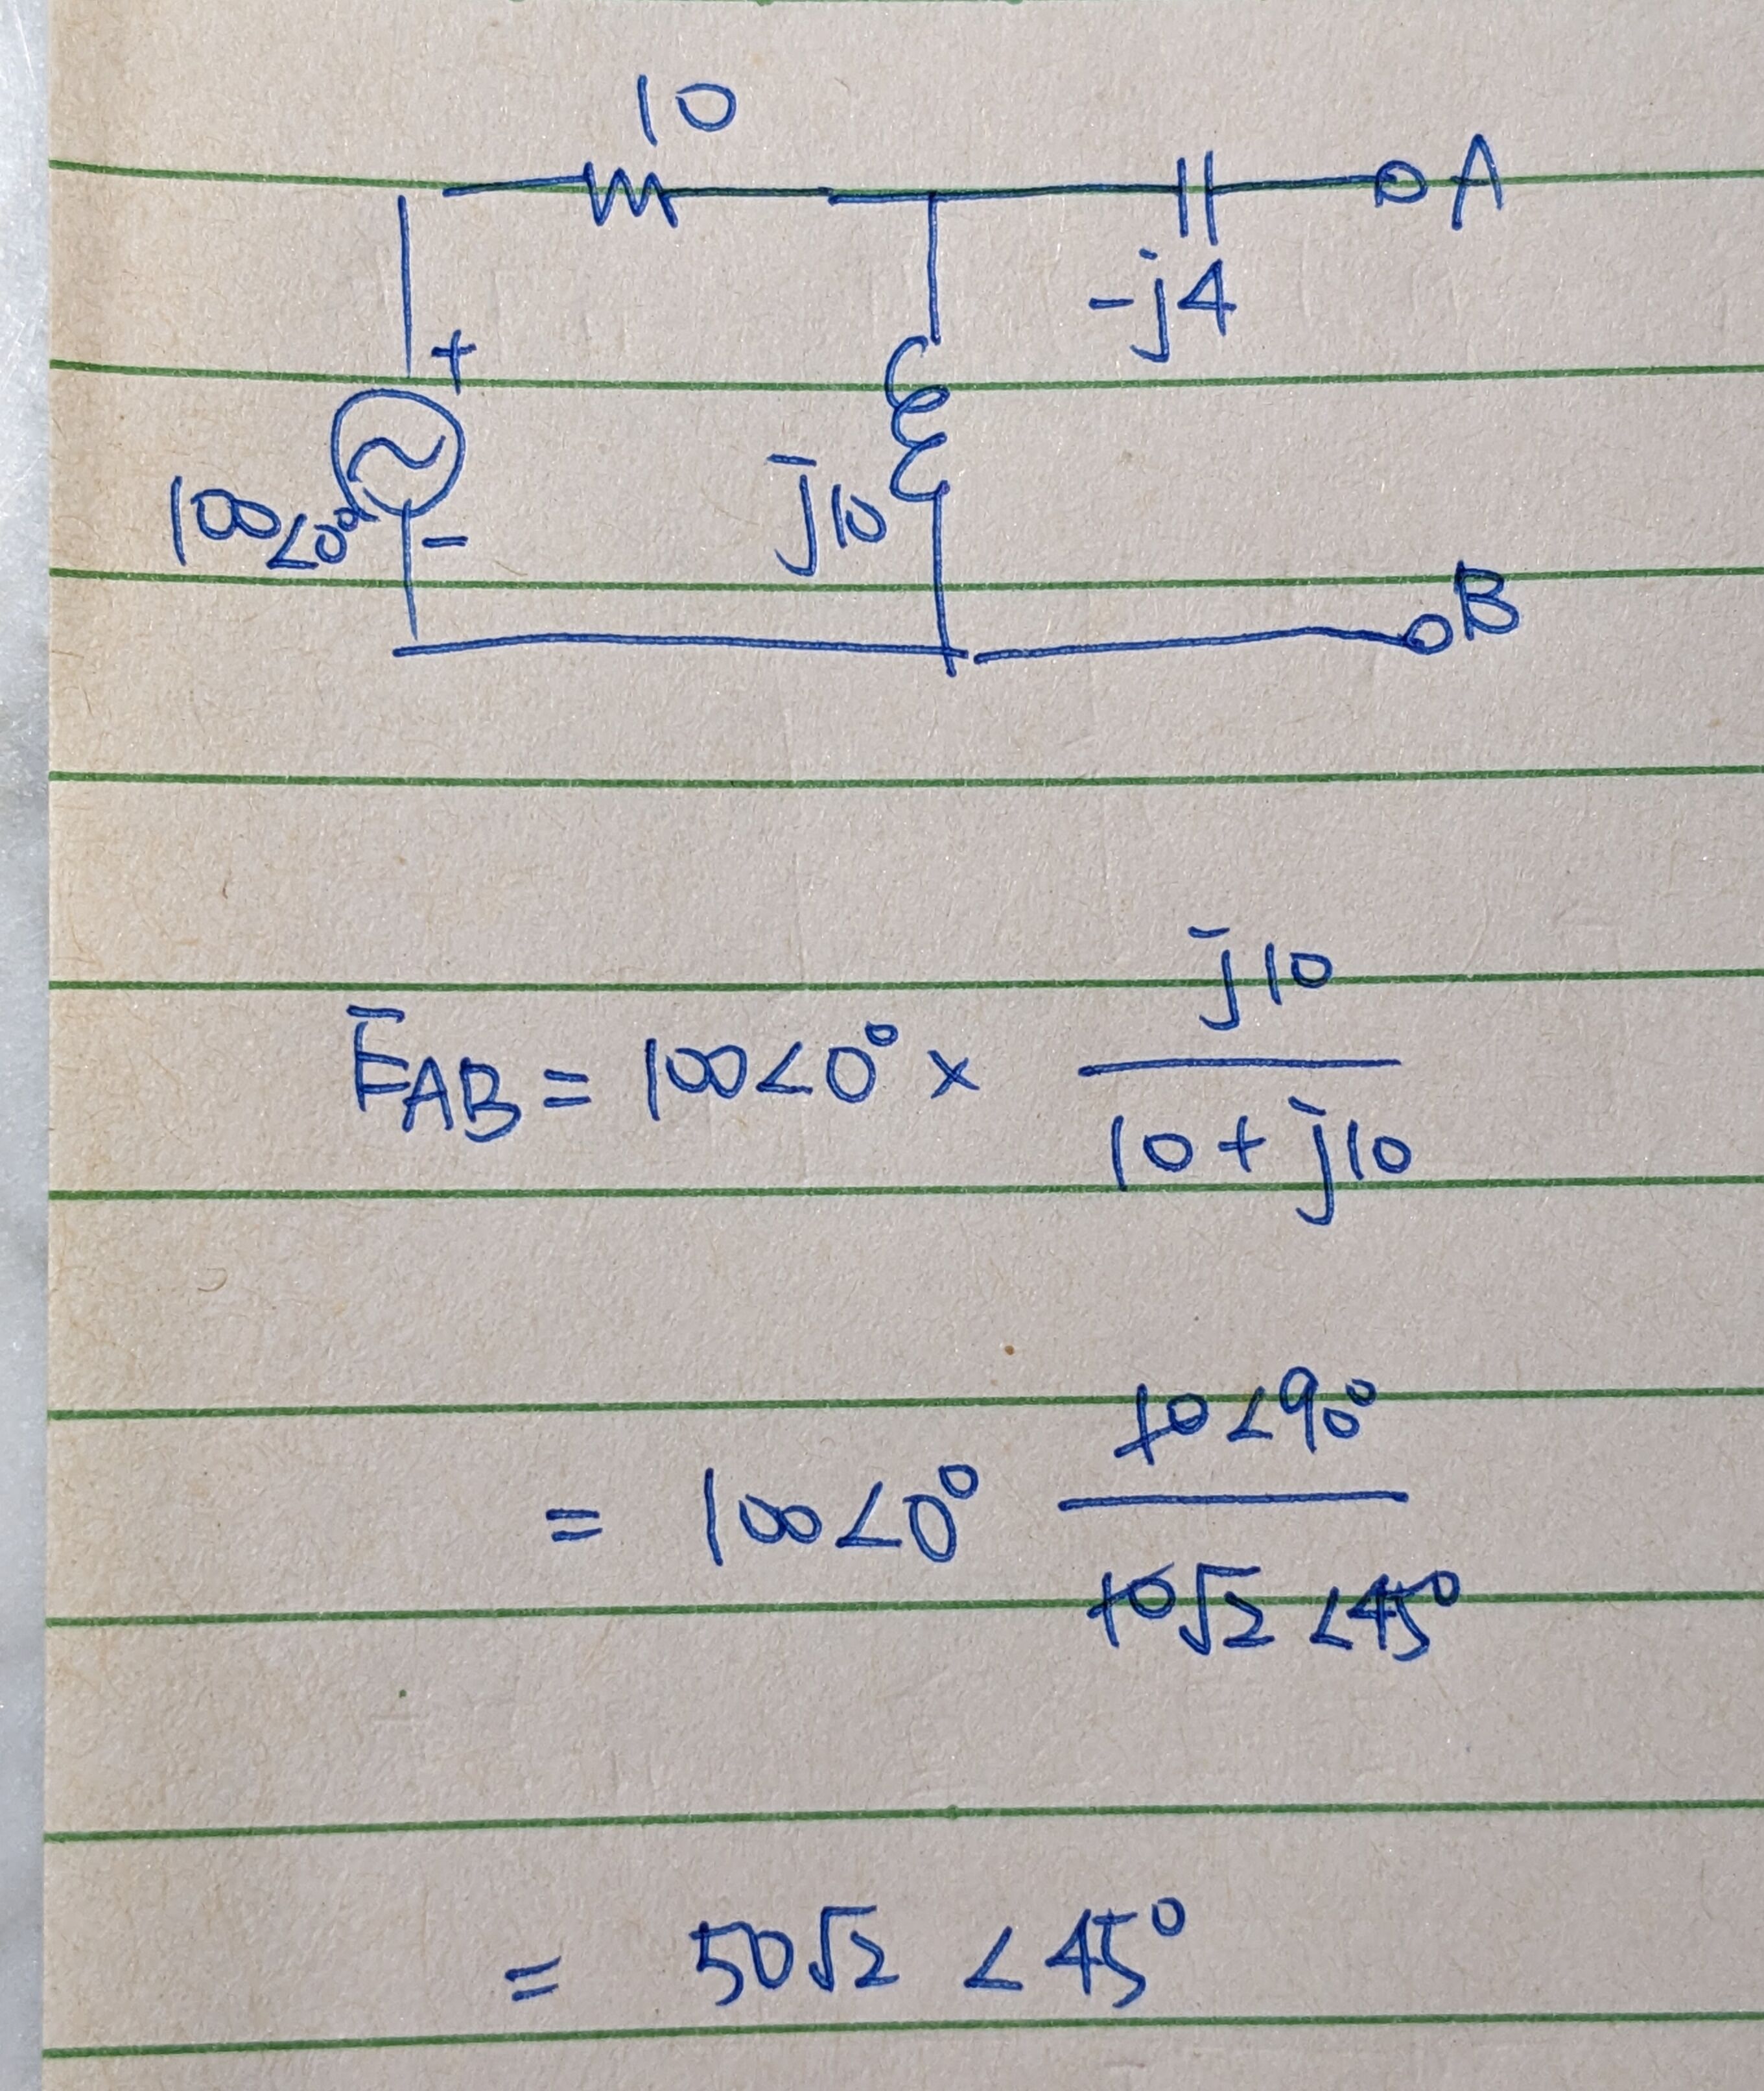 10
A
-j4
+
100∠0°
j̄10
-
B
Ē_AB = 100∠0° × j̄10 / (10 + j̄10)
= 100∠0° 10∠90° / (10√2 ∠45°)
= 50√2 ∠45°